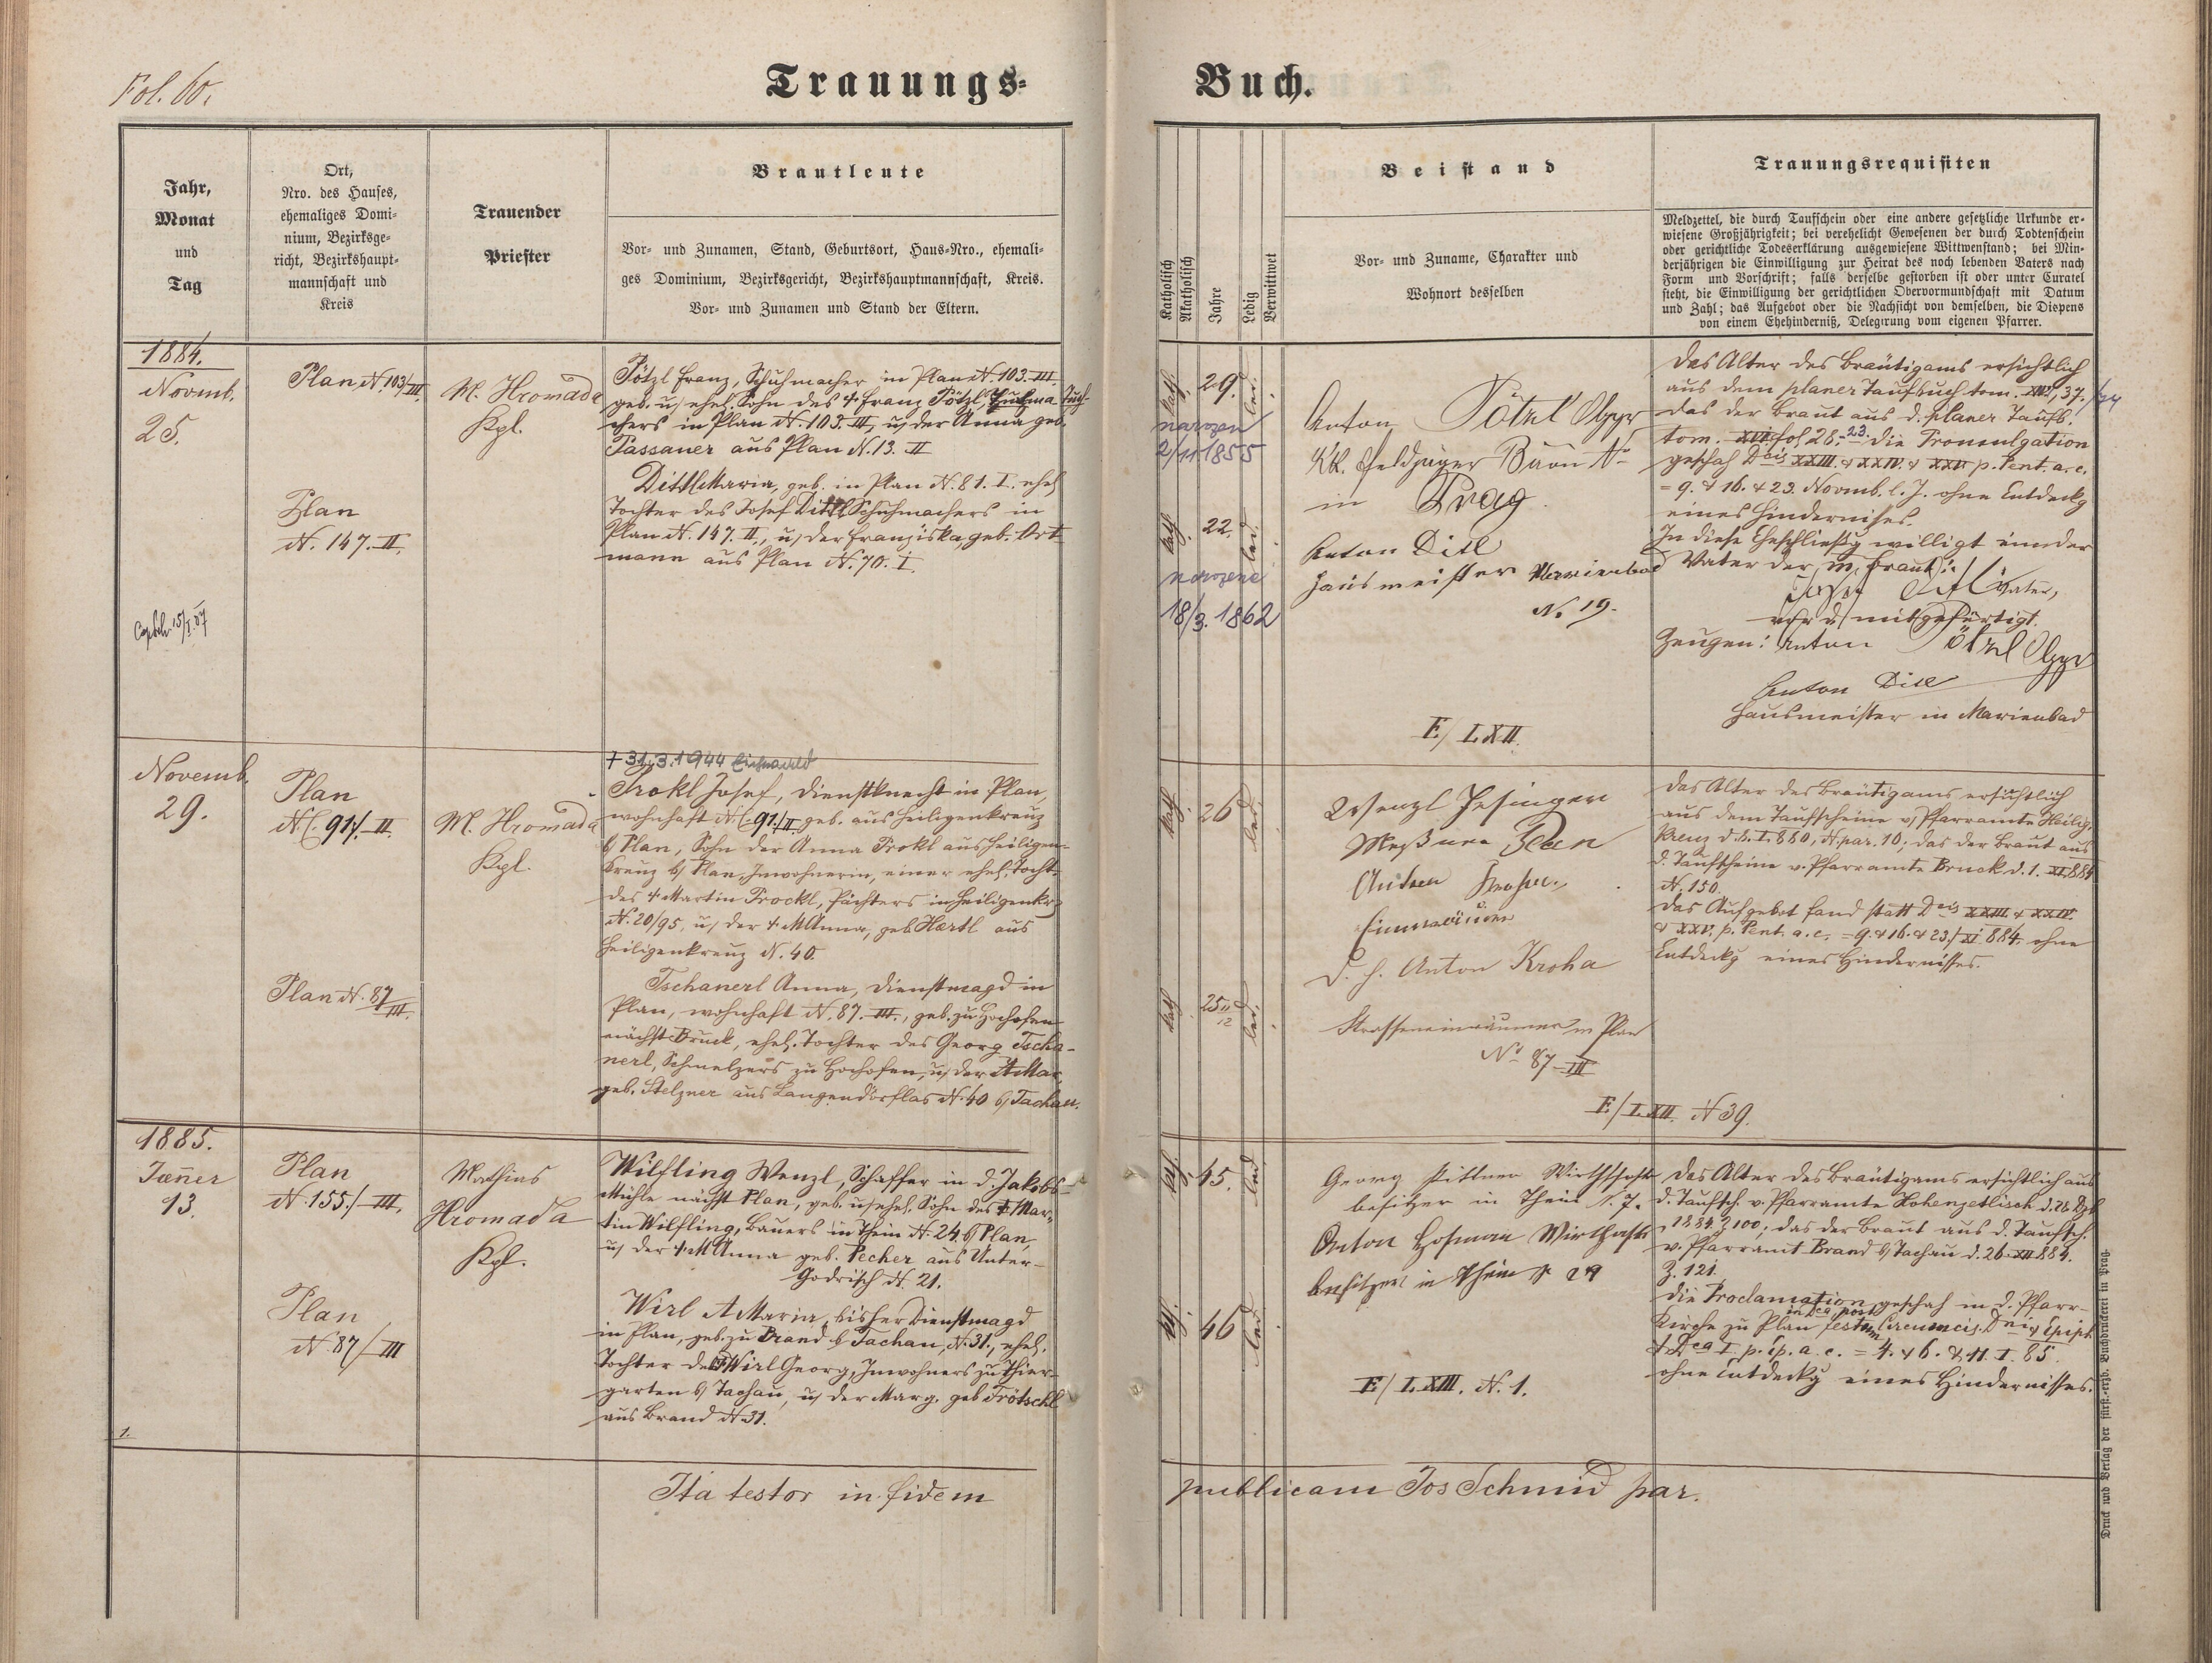 Fol. 60.
Trauungs-
Buch.
Jahr,
Monat
und
Tag
Ort,
Nro. des Hauses,
ehemaliges Domi-
nium, Bezirksge-
richt, Bezirkshaupt-
mannschaft und
Kreis
Trauender
Priester
Brautleute
Vor- und Zunamen, Stand, Geburtsort, Haus-Nro., ehemali-
ges Dominium, Bezirksgericht, Bezirkshauptmannschaft, Kreis.
Vor- und Zunamen und Stand der Eltern.
Katholisch
Akatholisch
Jahre
Ledig
Verwittwet
Beistand
Vor- und Zuname, Charakter und
Wohnort desselben
Trauungsrequisiten
Meldzettel, die durch Taufschein oder eine andere gesetzliche Urkunde er-
wiesene Großjährigkeit; bei verehelicht Gewesenen der durch Todtenschein
oder gerichtliche Todeserklärung ausgewiesene Wittwenstand; bei Min-
derjährigen die Einwilligung zur Heirat des noch lebenden Vaters nach
Form und Vorschrift; falls derselbe gestorben ist oder unter Curatel
steht, die Einwilligung der gerichtlichen Obervormundschaft mit Datum
und Zahl; das Aufgebot oder die Nachsicht von demselben, die Dispens
von einem Ehehinderniß, Delegirung vom eigenen Pfarrer.
1884.
Novmb.
25.
Plan N. 103/III.
M. Hromada
Kpl.
Pötzl Franz, Schuhmacher in Plan N. 103. III.
geb. u/ ehel. Sohn des † Franz Pötzl Tuch-
chers in Plan N. 103. III, u/ der Anna geb.
Passauer aus Plan N. 13. II
Plan
N. 147. II.
Dittl Maria, geb. in Plan N. 81. I. ehel.
Tochter des Josef Dittl Schuhmachers in
Plan N. 147. II., u/ der Franziska, geb. Ort-
mann aus Plan N. 70. I.
15/I. 07
kath.
29.
led.
narozen
2/11 1855
kath.
22.
led.
narozena
18/3. 1862
Anton Pötzl
KK. Feldjäger Baon No
in Prag
Anton Ditl
Hausmeister Marienbad
No 19.
E/ LXII.
Das Alter des Bräutigams ersichtlich
aus dem planer Taufbuch tom. XVI, 37.
das der Braut aus d. planer Taufb.
tom. XVI. fol 28.-23. Die Promulgation
geschah Dcis XXIII. & XXIV. & XXV p. Pent. a. c.
= 9. & 16. & 23. Novmb. l. J. ohne Entdeckg
eines Hindernisses.
In diese Eheschließg willigt ein der
Vater der m. Braut:
Josef Ditl Vater,
mitgefertigt.
Zeugen: Anton Pötzl
Anton Ditl
Hausmeister in Marienbad
Novemb.
29.
Plan
N. C. 91/. II.
M. Hromada
Kpl.
† 31.3.1944
Trokl Josef, Dienstknecht in Plan,
wohnhaft N. C. 91./II. geb. aus Heiligenkreuz
b/ Plan, Sohn der Anna Trokl aus Heiligen-
kreuz b/ Plan, Inwohnerin, einer ehel. Tocht.
des † Martin Trockl, Pächters in Heiligenkr.
N. 20/95, u/ der † M Anna, geb. Hærtl aus
Heiligenkreuz N. 40.
Plan N. 87/III.
Tschanerl Anna, Dienstmagd in
Plan, wohnhaft N. 87. III., geb. zu Hochofen
nächst Bruck, ehel. Tochter des Georg Tscha-
nerl, Schmelzers zu Hochofen, u/ der A Mar.
geb. Stelzner aus Langendörflas N. 40 b/ Tachau.
kath.
26
led.
kath
25 11/12
led.
Wenzl
Anton Kroha
Strasseneinräumer in Plan
No 87-III
E/ LXII. N 39.
Das Alter des Bräutigams ersichtlich
aus dem Taufscheine v/ Pfarramte Heilig.
Kreuz N. par. 10; das der Braut aus
d. Taufscheine v. Pfarramte Bruck d. 1. XI. 884
N. 150.
Das Aufgebot fand statt Dcis XXIII & XXIV.
& XXV. p. Pent. a. c. = 9. & 16. & 23./XI 884. ohne
Entdeckg eines Hindernisses.
1885.
Jæner
13.
Plan
N. 155./ III.
Mathias
Hromada
Kpl.
Wilfling Wenzl, Schaffer in d. Jakobs-
Mühle nächst Plan, geb. u/ ehel. Sohn des † Mar-
tin Wilfling, Bauers in Thein N. 24, b/ Plan,
u/ der † M Anna geb. Pecher aus Unter-
Godrisch N. 21.
Plan
N. 87/ III
Wirl A Maria, bisher Dienstmagd
in Plan, geb. zu Brand b/ Tachau, N. 31., ehel.
Tochter des † Wirl Georg, Inwohners zu Thier-
garten b/ Tachau, u/ der Marg. geb. Trötschl
aus Brand N. 31.
1.
kath.
45.
led
kath.
46
led
Georg Pittner Wirthschafts
besitzer in Thein N. 7.
Anton Hofman Wirthschafts
besitzer in Thein N 29
E/ LXIII. N. 1.
Das Alter des Bräutigams ersichtlich aus
d. Taufsch. v. Pfarramte Hohenzetlisch d. 26 Dz
1884. Z 100; das der Braut aus d. Taufsch.
v. Pfarramt Brand b/ Tachau d. 26. XII 884.
Z. 121.
Die Proclamation geschah in d. Pfarr-
Kirche zu Plan in fest. Circumcis. Dni, Epiph.
& Dca I. p. Ep. a. c. = 4. & 6. & 11. I. 85.
ohne Entdeckg eines Hindernisses.
Ita testor in fidem
publicam Jos Schmid par.
Druck und Verlag der fürst.-erzb. Buchdruckerei in Prag.